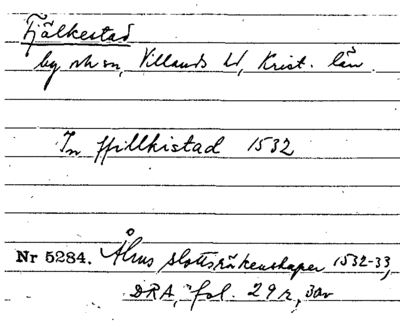 Fjälkestad
by o. sn, Villands hd, Krist. län.
In ffillkistad 1532
Nr 5284. Åhus slottsräkenskaper 1532-33,
DRA, fol. 29 r, 30v